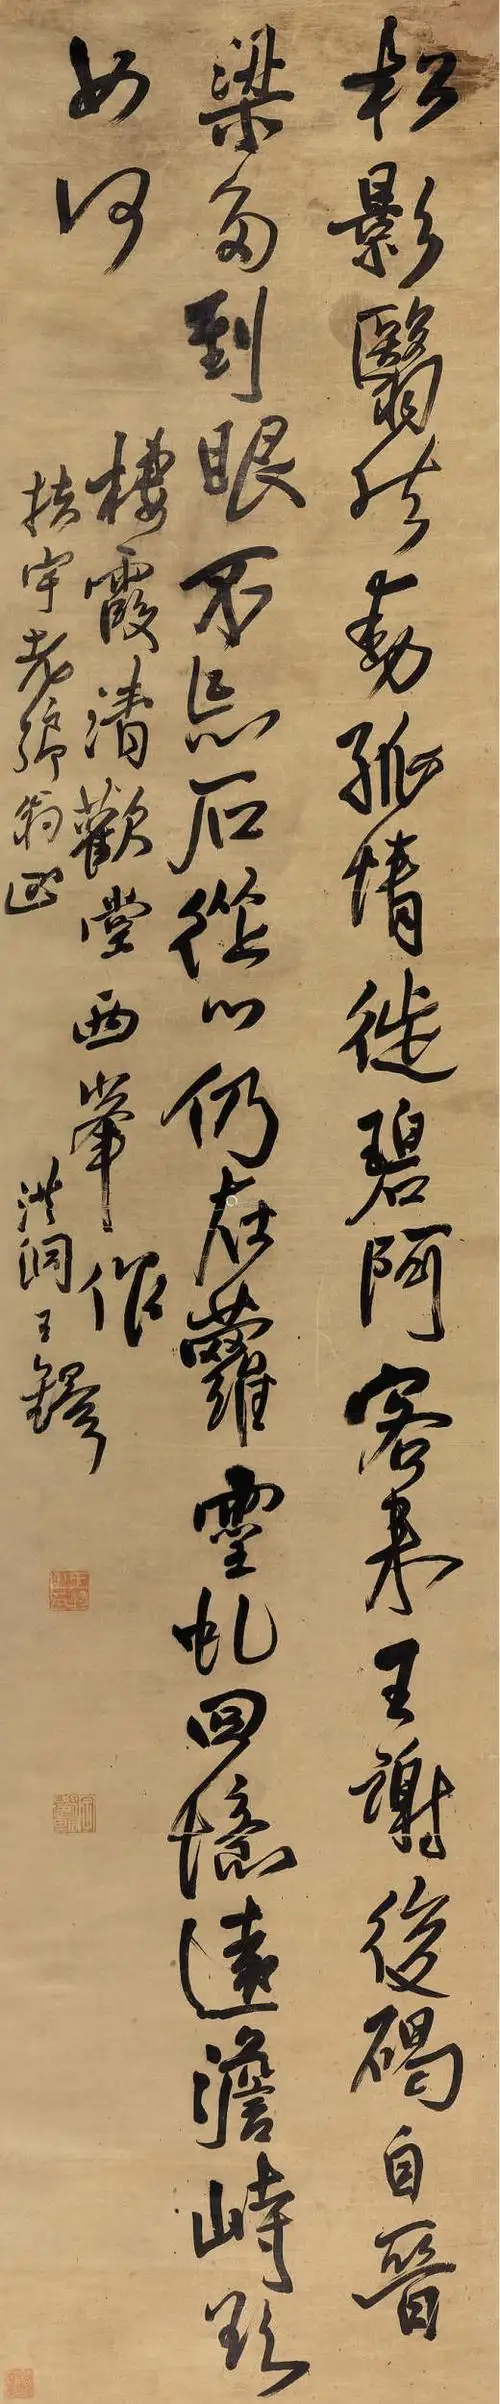 松影翳然動孤情徙碧阿客來王謝後碣自晉
梁多到眼不忘石從心仍在蘿靈虬回憶遠澹峙欲
如何
棲霞清歡堂西峯作
宇老鄉翁正
洪洞王鐸